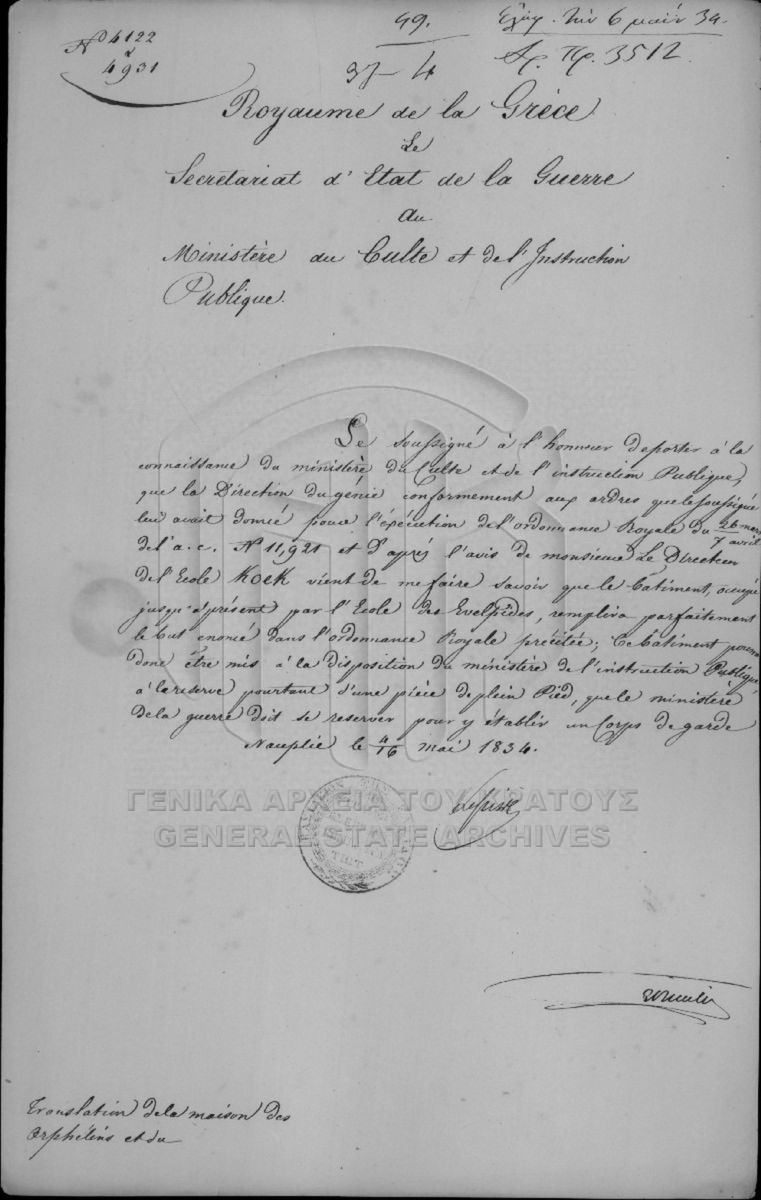 No 4122
4931
99.
37-4
Ελήφ. την 6 μαΐου 34.
Αρ. Πρ. 3512
Royaume de la Grèce
Le
Secretariat d'Etat de la Guerre
au
Ministère du Culte et de l'Instruction
Publique.
Le soussigné à l'honneur de porter à la
connaissance du ministère du Culte et de l'instruction Publique,
que la Direction du génie conformement aux ordres que le soussigné
lui avait donné pour l'éxécution de l'ordonnance Royale du 26 mars/7 avril
de l'a.c. No 11,921 et D'aprés l'avis de monsieur Le Directeur
de l'Ecole Kock vient de me faire savoir que le batiment, occupé
jusqu'aprésent par l'Ecole des Evelpides, remplira parfaitement
le but enoncé dans l'ordonnance Royale précitée; Ce bâtiment pourra
donc être mis à la disposition du ministère de l'instruction Publique,
à la reserve pourtant d'une pièce de plein Pied, que le ministère
de la guerre doit se reserver pour y établir un Corps de garde
Nauplie le 4/16 mai 1834.
ΓΕΝΙΚΑ ΑΡΧΕΙΑ ΤΟΥ ΚΡΑΤΟΥΣ
GENERAL STATE ARCHIVES
Translation de la maison des
Orphélins et du